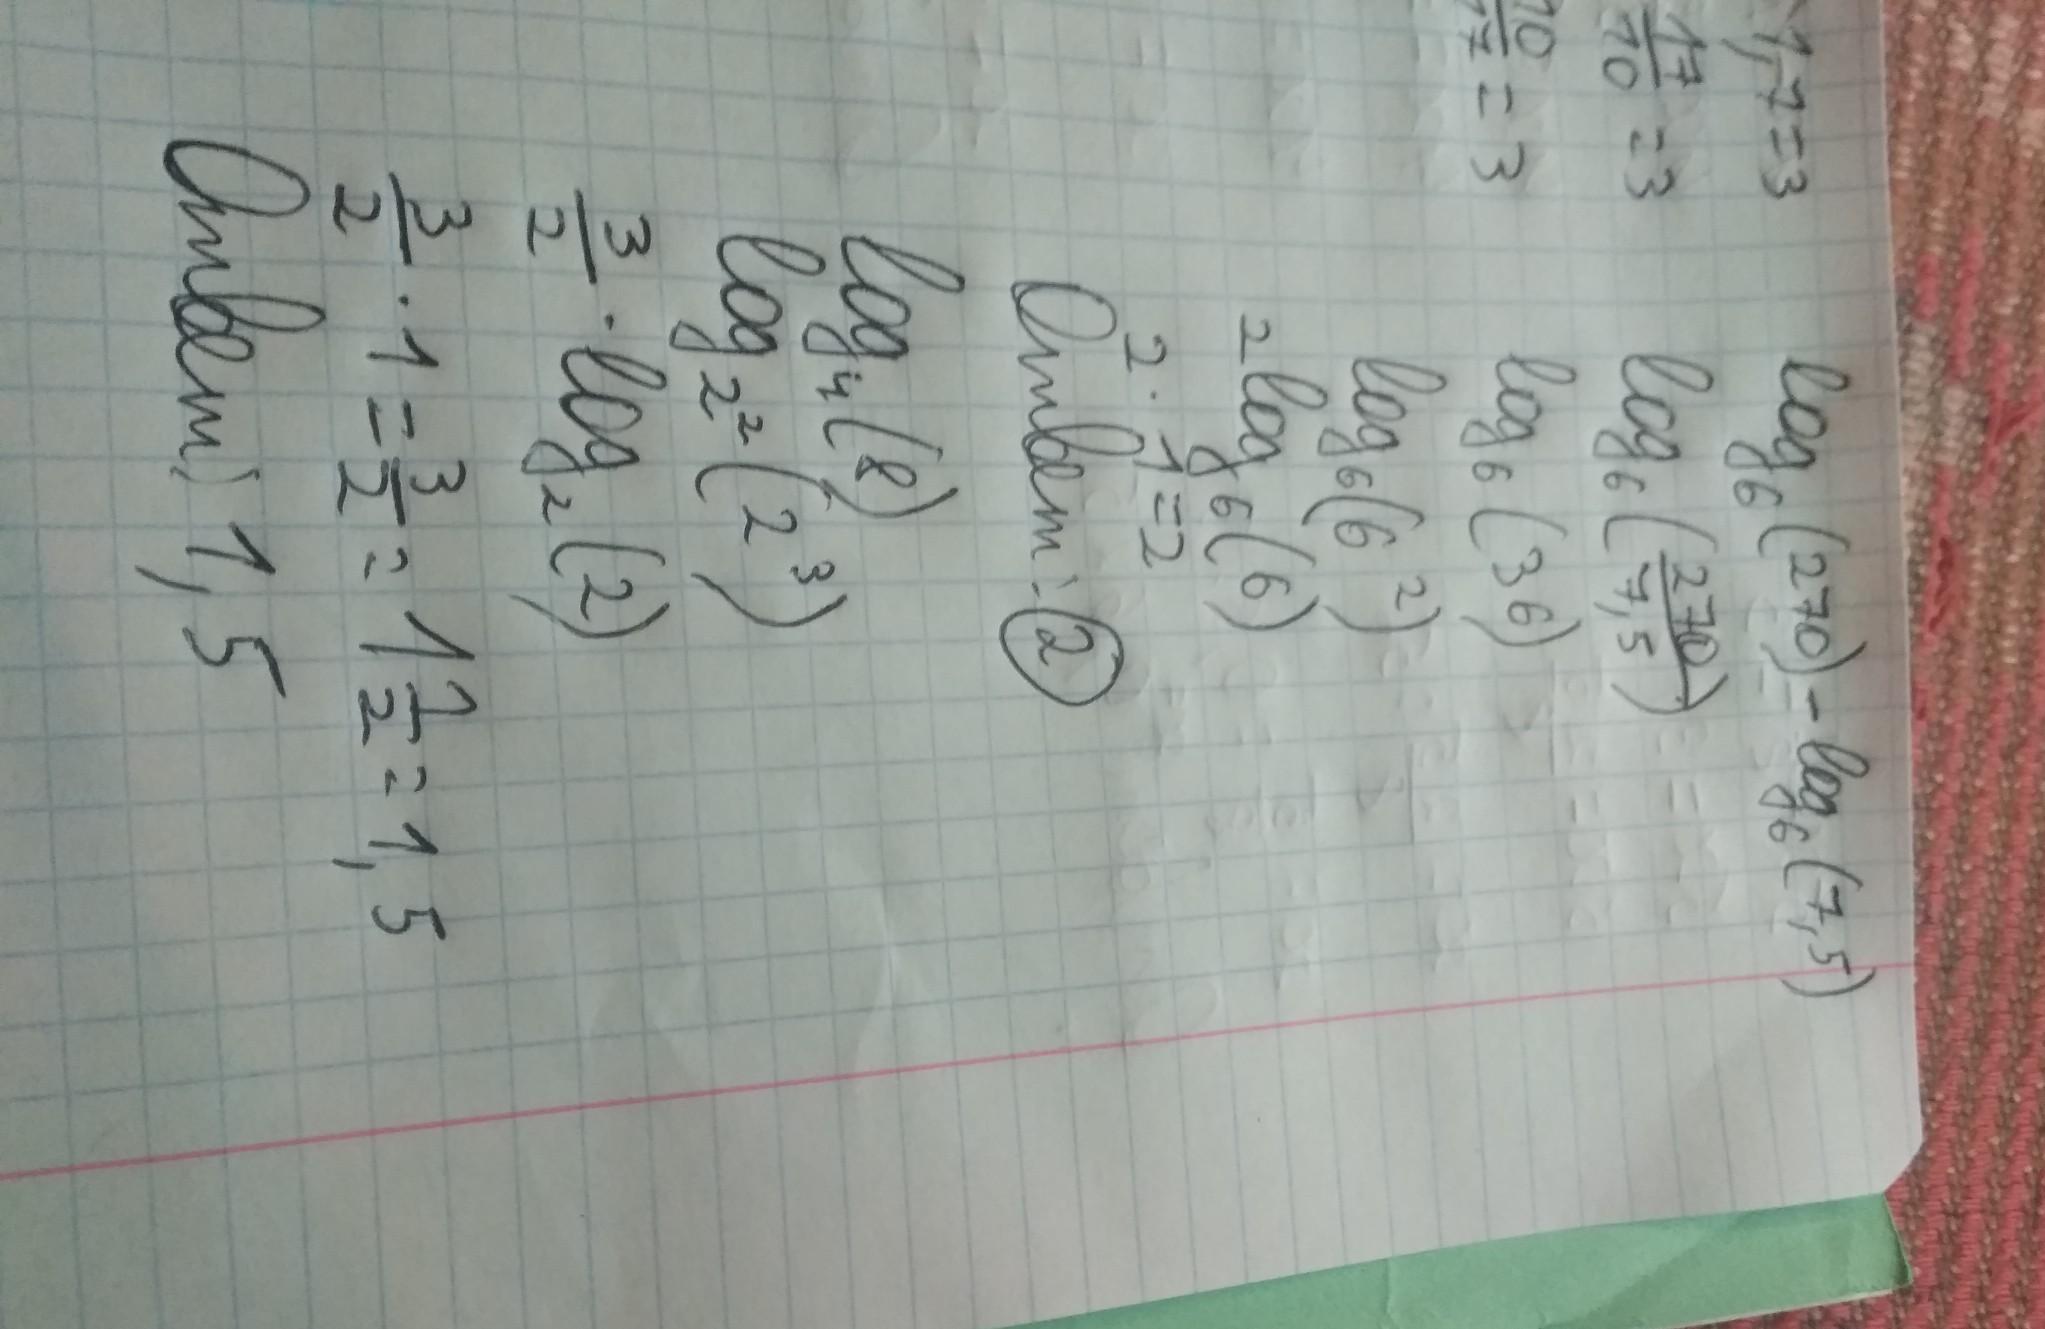 1,7=3
17/10=3
10/17=3
log₆(270)-log₆(7,5)
log₆(270/7,5)
log₆(36)
log₆(6²)
2log₆(6)
2·1=2
Ответ: 2
log₄(8)
log₂²(2³)
3/2·log₂(2)
3/2·1=3/2=1 1/2=1,5
Ответ: 1,5